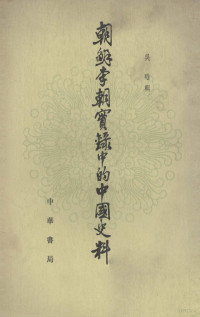 朝鮮李朝實錄中的中國史料
吳晗輯
中華書局